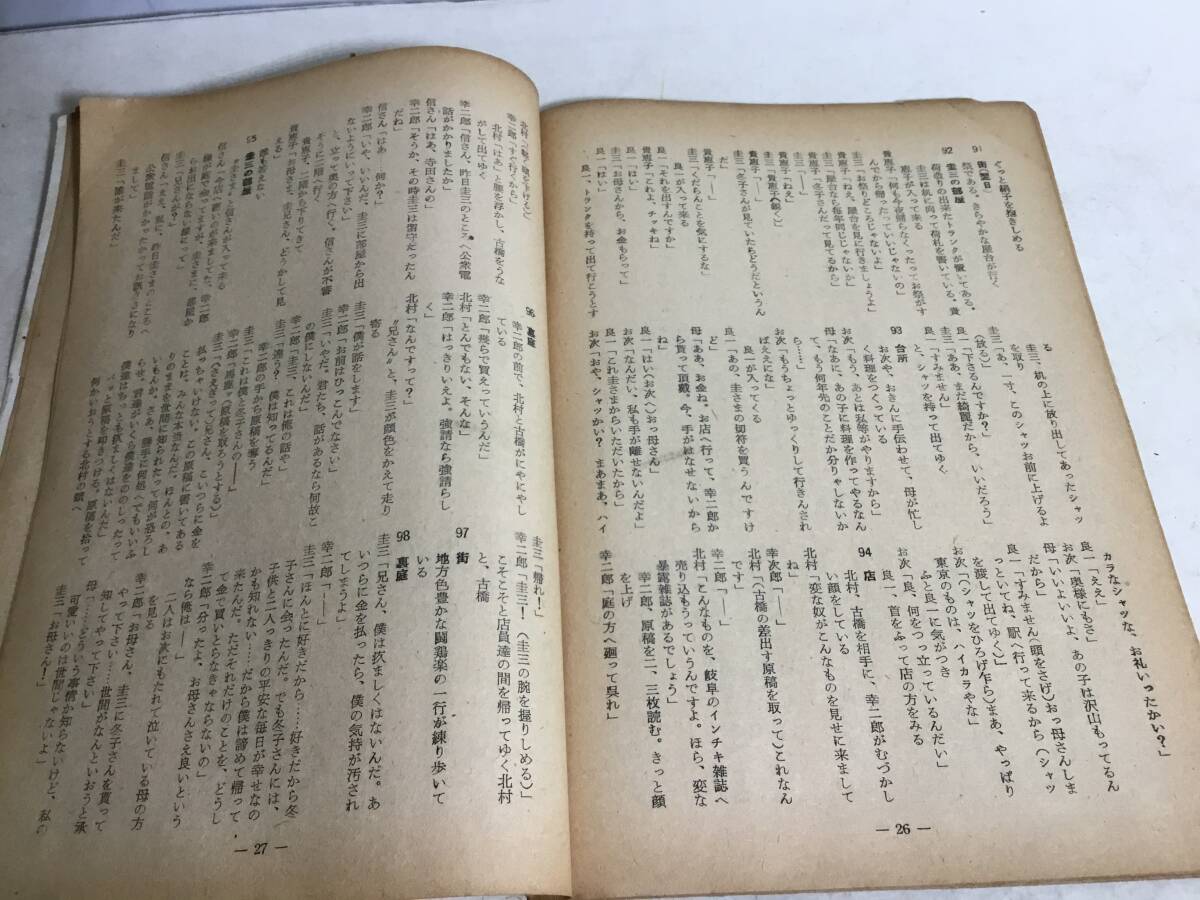 ぐっと絹子を抱きしめる
91 街(翌日)
祭である。きらやかな屋台が行く
92 圭三の部屋
荷造りの出来たトランクが置いてある。
圭三は机に向って荷札を書いている。貴
恵子が入って来る
貴恵子「何も今夜帰らなくったってお祭がす
んでから帰ったっていいじゃないの」
圭三「お祭りどころじゃないよ」
貴恵子「ねえ、屋台を見に行きましょうよ」
圭三「屋台なら毎年同じじゃないか」
貴恵子「冬子さんだって見てるから」
圭三「――」
貴恵子「ねえ」
貴恵子「冬子さんが見ていたらどうだというん
圭三「くだらんことを気にするな」
貴恵子「――」
良一が入って来る
良一「それを出すんですか」
貴恵子「これよ、チッキね」
良一「はい」
圭三「お母さんから、お金もらって」
良一「はい」
良一、トランクを持って出て行こうとす
る
圭三、机の上に放り出してあったシャツ
を取り
圭三「あ、一寸、このシャツお前に上げるよ
(放る)」
良一「下さるんですか?」
圭三「ああ、まだ綺麗だから、いいだろう」
良一「すみません」
と、シャツを持って出てゆく
93 台所
お次や、おきんに手伝わせて、母が忙し
く料理をつくっている
お次「もう、あとは私等がやりますから」
母「なあに、あの子に料理を作ってやるなん
て、もう何年先のことだか分りゃしないか
ら……」
お次「もうちょっとゆっくりして行きんされ
ばええにな」
良一が入ってくる
良一「あの、圭さまの切符を買うんですけ
ど」
母「ああ、お金ね。お店へ行って、幸二郎か
ら貰って頂戴。今、手がはなせないから
ね」
良一「はい(お次へ)おっ母さん」
お次「なんだい、私も手が離せないんだよ」
良一「これ圭さまからいただいたから」
お次「おや、シャツかい?まあまあ、ハイ
カラなシャツな、お礼いったかい?」
良一「ええ」
お次「奥様にもさ」
母「いいよいいよ、あの子は沢山もってるん
だから」
良一「すみません(頭をさげ)おっ母さんしま
っといてね、駅へ行って来るから(シャツ
を渡して出てゆく)」
お次「(シャツをひろげ乍ら)まあ、やっぱり
東京のものは、ハイカラやな」
ふと良一に気がつき
お次「良、何をつっ立っているんだい」
良一、首をふって店の方をみる
94 店
北村、古橋を相手に、幸二郎がむづかし
い顔をしている
北村「変な奴がこんなものを見せに来まして
ね」
幸次郎「(古橋の差出す原稿を取って)これなん
です」
北村「こんなものを、岐阜のインチキ雑誌へ
売り込もうっていうんですよ。ほら、変な
暴露雑誌があるでしょう」
幸二郎、原稿を二、三枚読む。きっと顔
を上げ
幸二郎「庭の方へ廻って呉れ」
― 26 ―
幸二郎「すぐ行くから」
北村「はあ」と腰を浮かし、古橋をうな
がして出てゆく
幸二郎「信さん、昨日圭三のところへ公衆電
話がかかりましたか」
信さん「はあ、寺田さんの」
幸二郎「そうか、その時圭三は留守だったん
だね」
信さん「はあ、何か?」
幸二郎「いや、いいんだ。圭三に部屋から出
ないようにいって下さい」
と、立って奥の方へ行く。信さんが不審
そうに二階へ行く
貴恵子、二階から下りてきて
貴恵子「お母さま、圭兄さん、どうかして見
える」
誰も答えない
95 圭三の部屋
「圭さま」と信さんが入って来る
圭三「信さんか?」
圭三「誰が来たんだ」
96 裏庭
幸二郎の前で、北村と古橋がにやにやし
ている
幸二郎「幾らで買えっていうんだ」
北村「とんでもない、そんな」
幸二郎「はっきりいえよ。強請なら強請らし
く」
北村「なんですって?」
"兄さん"と、圭三が顔色をかえて走り
寄る
圭三「僕が話をします」
幸二郎「お前はひっこんでなさい」
圭三「いやだ。君たち、話があるなら何故こ
の僕にしないんだ」
幸二郎「圭三、これは俺の話や」
圭三「違う?僕は知ってるんだ」
幸二郎の手から原稿を奪う
圭三「これは僕と冬子さんの――」
幸二郎「馬鹿っ(原稿を取ろうとする)」
圭三「(さえぎって)兄さん、こいつらに金を
私っちゃいけない。この原稿に書いてある
ことはね、みんな本当なんだ。ほんとの、あ
りのままを世間に知られたって何が恐ろし
いもんか。さあ、勝手に何処へでもいいふ
らせ。君達がいくら僕達をののしったって
僕達はちっとも疚しくはないんだ」
っと原稿を叩きつける。原稿を拾って
何かいおうとする北村の顔へ
圭三「帰れ!」
幸二郎「圭三!(圭三の腕を握りしめる)」
こそこそと店員達の間を帰ってゆく北村
と、古橋
97 街
地方色豊かな闘鶏楽の一行が練り歩いて
いる
98 裏庭
圭三「兄さん、僕は疚ましくはないんだ。あ
いつらに金を払ったら、僕の気持が汚され
てしまうよ」
幸二郎「――」
圭三「ほんとに好きだから……好きだから冬
子さんに会ったんだ。でも冬子さんには、
子供と二人っきりの平安な毎日が幸せなの
かも知れない……だから僕は諦めて帰って
来たんだ。ただそれだけのことを、どうし
て金で買いとらなきゃならないの」
幸二郎「分ったよ、お母さんさえ良いという
なら俺は――」
二人はお次にもたれて泣いている母の方
を見る
幸二郎「お母さん、圭三に冬子さんを貰って
やって下さい……世間がなんといおうと承
知してやって下さい」
母「……どういう事情か知らないけど、私の
可愛いいのは世間じゃないよ」
圭三「お母さん!」
― 27 ―